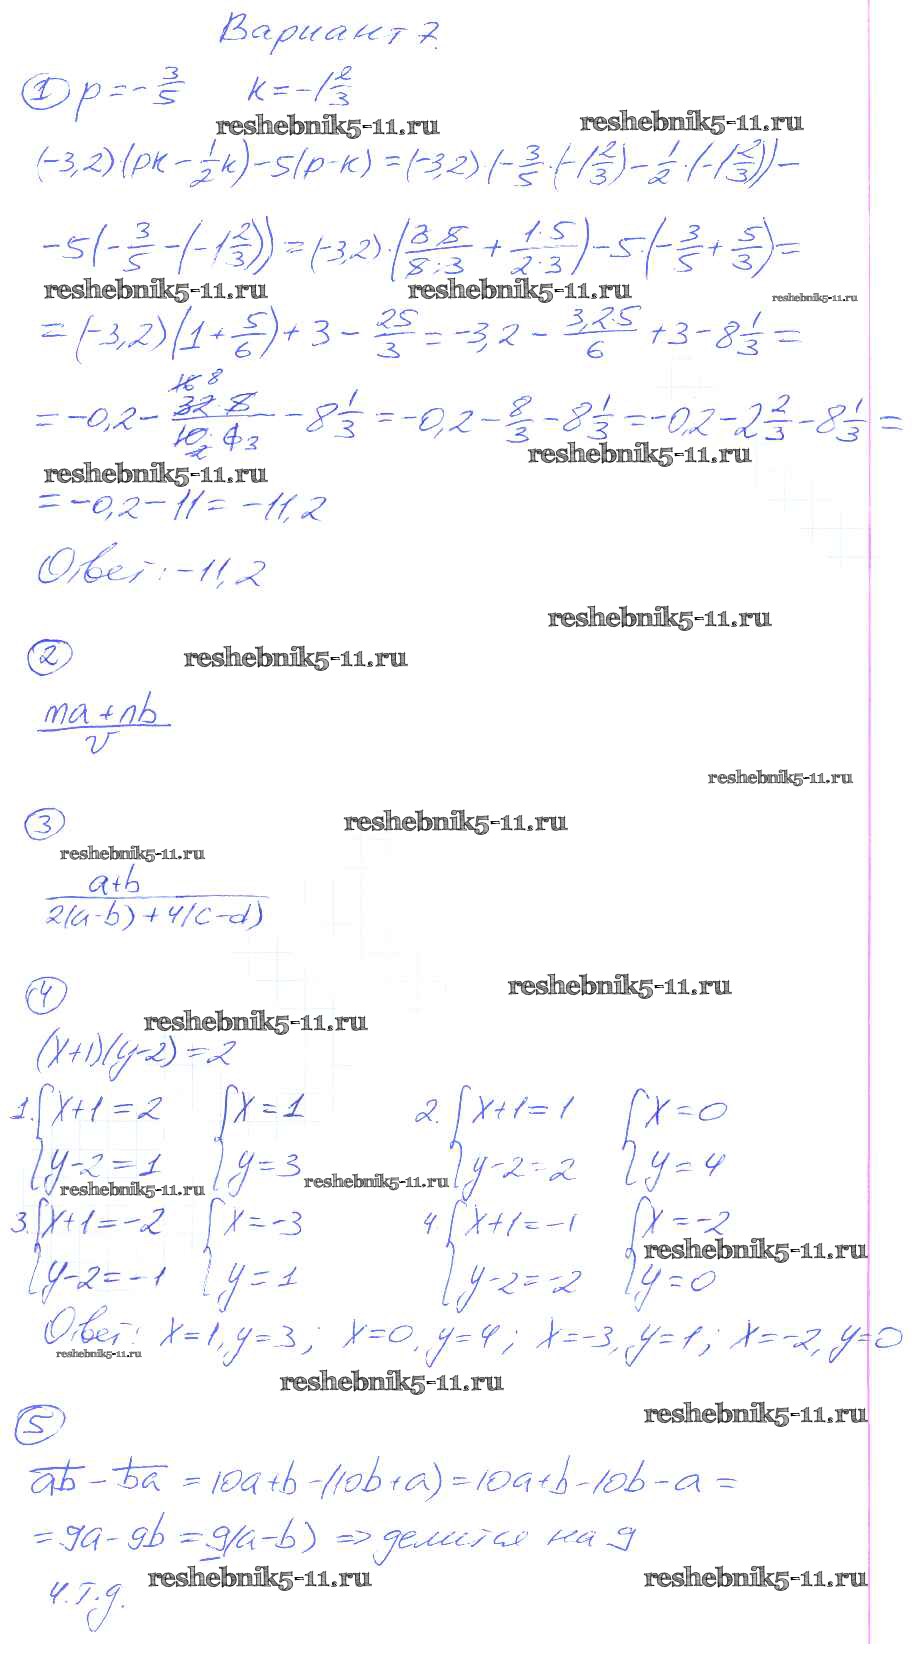 Вариант 7.
① p = -3/5   k = -1 2/3
reshebnik5-11.ru   reshebnik5-11.ru
(-3,2)·(pk - 1/2 k) - 5(p-k) = (-3,2)·(-3/5·(-1 2/3) - 1/2·(-1 2/3)) -
-5(-3/5 - (-1 2/3)) = (-3,2)·(3·5/5·3 + 1·5/2·3) - 5·(-3/5 + 5/3) =
reshebnik5-11.ru   reshebnik5-11.ru   reshebnik5-11.ru
= (-3,2)(1 + 5/6) + 3 - 25/3 = -3,2 - 3,2·5/6 + 3 - 8 1/3 =
16 8
= -0,2 - 32·5/10·6 3 - 8 1/3 = -0,2 - 8/3 - 8 1/3 = -0,2 - 2 2/3 - 8 1/3 =
2
reshebnik5-11.ru   reshebnik5-11.ru
= -0,2 - 11 = -11,2
Ответ: -11,2
reshebnik5-11.ru
② reshebnik5-11.ru
ma + nb
v
reshebnik5-11.ru
③ reshebnik5-11.ru
reshebnik5-11.ru
a+b
2(a-b) + 4(c-d)
④ reshebnik5-11.ru
reshebnik5-11.ru
(x+1)(y-2) = 2
1. { x+1 = 2   { x = 1   2. { x+1 = 1   { x = 0
y-2 = 1   y = 3   y-2 = 2   y = 4
reshebnik5-11.ru   reshebnik5-11.ru
3. { x+1 = -2   { x = -3   4. { x+1 = -1   { x = -2
reshebnik5-11.ru
y-2 = -1   y = 1   y-2 = -2   y = 0
Ответ: x=1, y=3; x=0, y=4; x=-3, y=1; x=-2, y=0
reshebnik5-11.ru
reshebnik5-11.ru
reshebnik5-11.ru
⑤
ab - ba = 10a+b-(10b+a) = 10a+b-10b-a =
= 9a - 9b = 9(a-b) => делится на 9
reshebnik5-11.ru   reshebnik5-11.ru
ч.т.д.